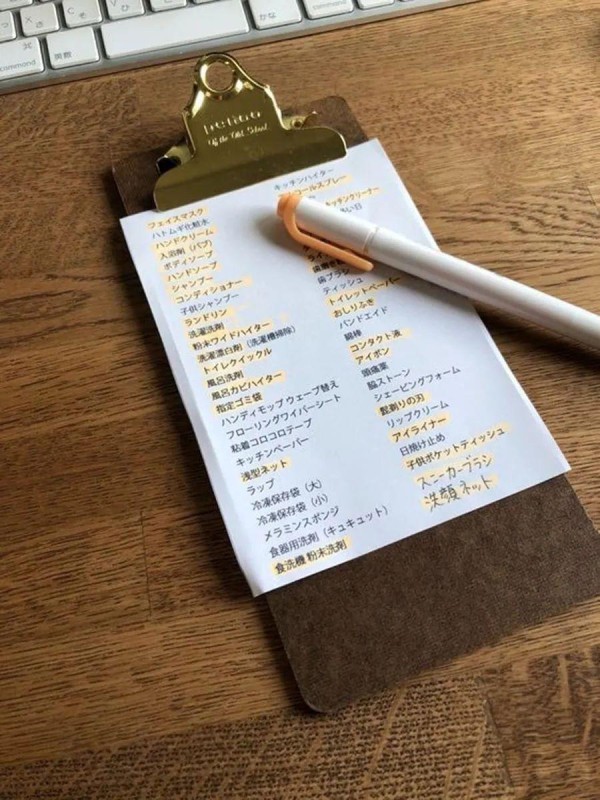 command
英数
かな
command
of the Old School
フェイスマスク
ハトムギ化粧水
ハンドクリーム
入浴剤（バブ）
ボディソープ
ハンドソープ
シャンプー
コンディショナー
子供シャンプー
ランドリン
洗濯洗剤
粉末ワイドハイター
洗濯漂白剤（洗濯槽掃除）
トイレクイックル
風呂洗剤
風呂カビハイター
指定ゴミ袋
ハンディモップウェーブ替え
フローリングワイパーシート
粘着コロコロテープ
キッチンペーパー
浅型ネット
ラップ
冷凍保存袋（大）
冷凍保存袋（小）
メラミンスポンジ
食器用洗剤（キュキュット）
食洗機 粉末洗剤
キッチンハイター
コールスプレー
キッチンクリーナー
歯ブラシ
ティッシュ
トイレットペーパー
おしりふき
バンドエイド
綿棒
コンタクト液
アイボン
頭痛薬
脇ストーン
シェービングフォーム
髭剃りの刃
リップクリーム
アイライナー
日焼け止め
子供ポケットティッシュ
スニーカーブラシ
洗顔ネット